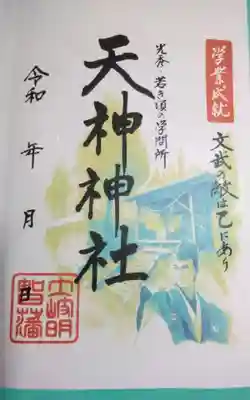 学業成就
文武の敵は己にあり
光秀 若き頃の学問所
天神神社
令和 年 月 日
土岐明